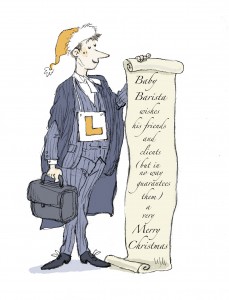 Baby
Barista
wishes
his friends
and
clients
(but in
no way
guarantees
them)
a
very
Merry
Christmas
L